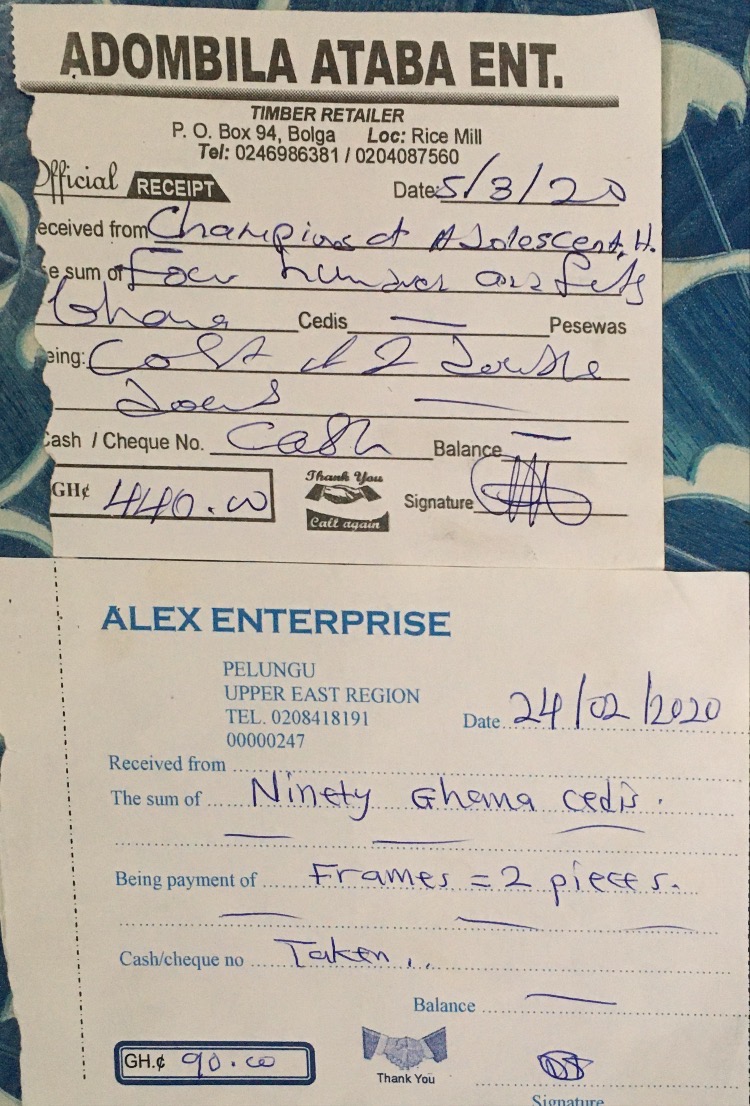 ADOMBILA ATABA ENT.
TIMBER RETAILER
P. O. Box 94, Bolga Loc: Rice Mill
Tel: 0246986381 / 0204087560
Official RECEIPT Date: 5/3/20
eceived from Champions of Adolescent. H.
e sum of Four hundred and
Ghana Cedis — Pesewas
eing: Cost of 2 Double
Doors —
Cash / Cheque No. Cash Balance —
GH¢ 440.00 Thank You Signature
Call again
ALEX ENTERPRISE
PELUNGU
UPPER EAST REGION
TEL. 0208418191 Date 24/02/2020
00000247
Received from
The sum of Ninety Ghana cedis.
Being payment of Frames = 2 pieces.
Cash/cheque no Taken..
Balance —
GH.¢ 90.00 Thank You
Signature